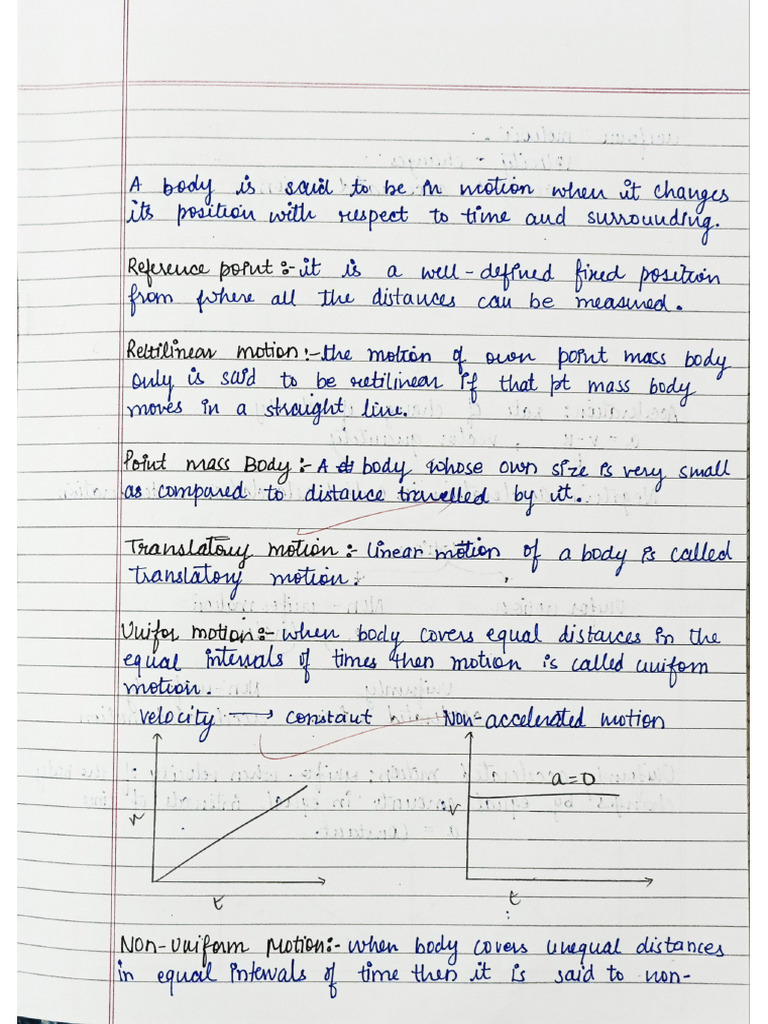 A body is said to be in motion when it changes
its position with respect to time and surrounding.
Reference point :- it is a well-defined fixed position
from where all the distances can be measured.
Rectilinear motion :- the motion of own point mass body
only is said to be retilinear if that pt mass body
moves in a straight line.
Point mass Body :- A body whose own size is very small
as compared to distance travelled by it.
Translatory motion :- linear motion of a body is called
translatory motion.
Unifor motion :- when body covers equal distances in the
equal intervals of times then motion is called uniform
motion.
velocity → constant Non-accelerated motion
a=0
v
t
t
Non-uniform Motion :- when body covers unequal distances
in equal intervals of time then it is said to non-